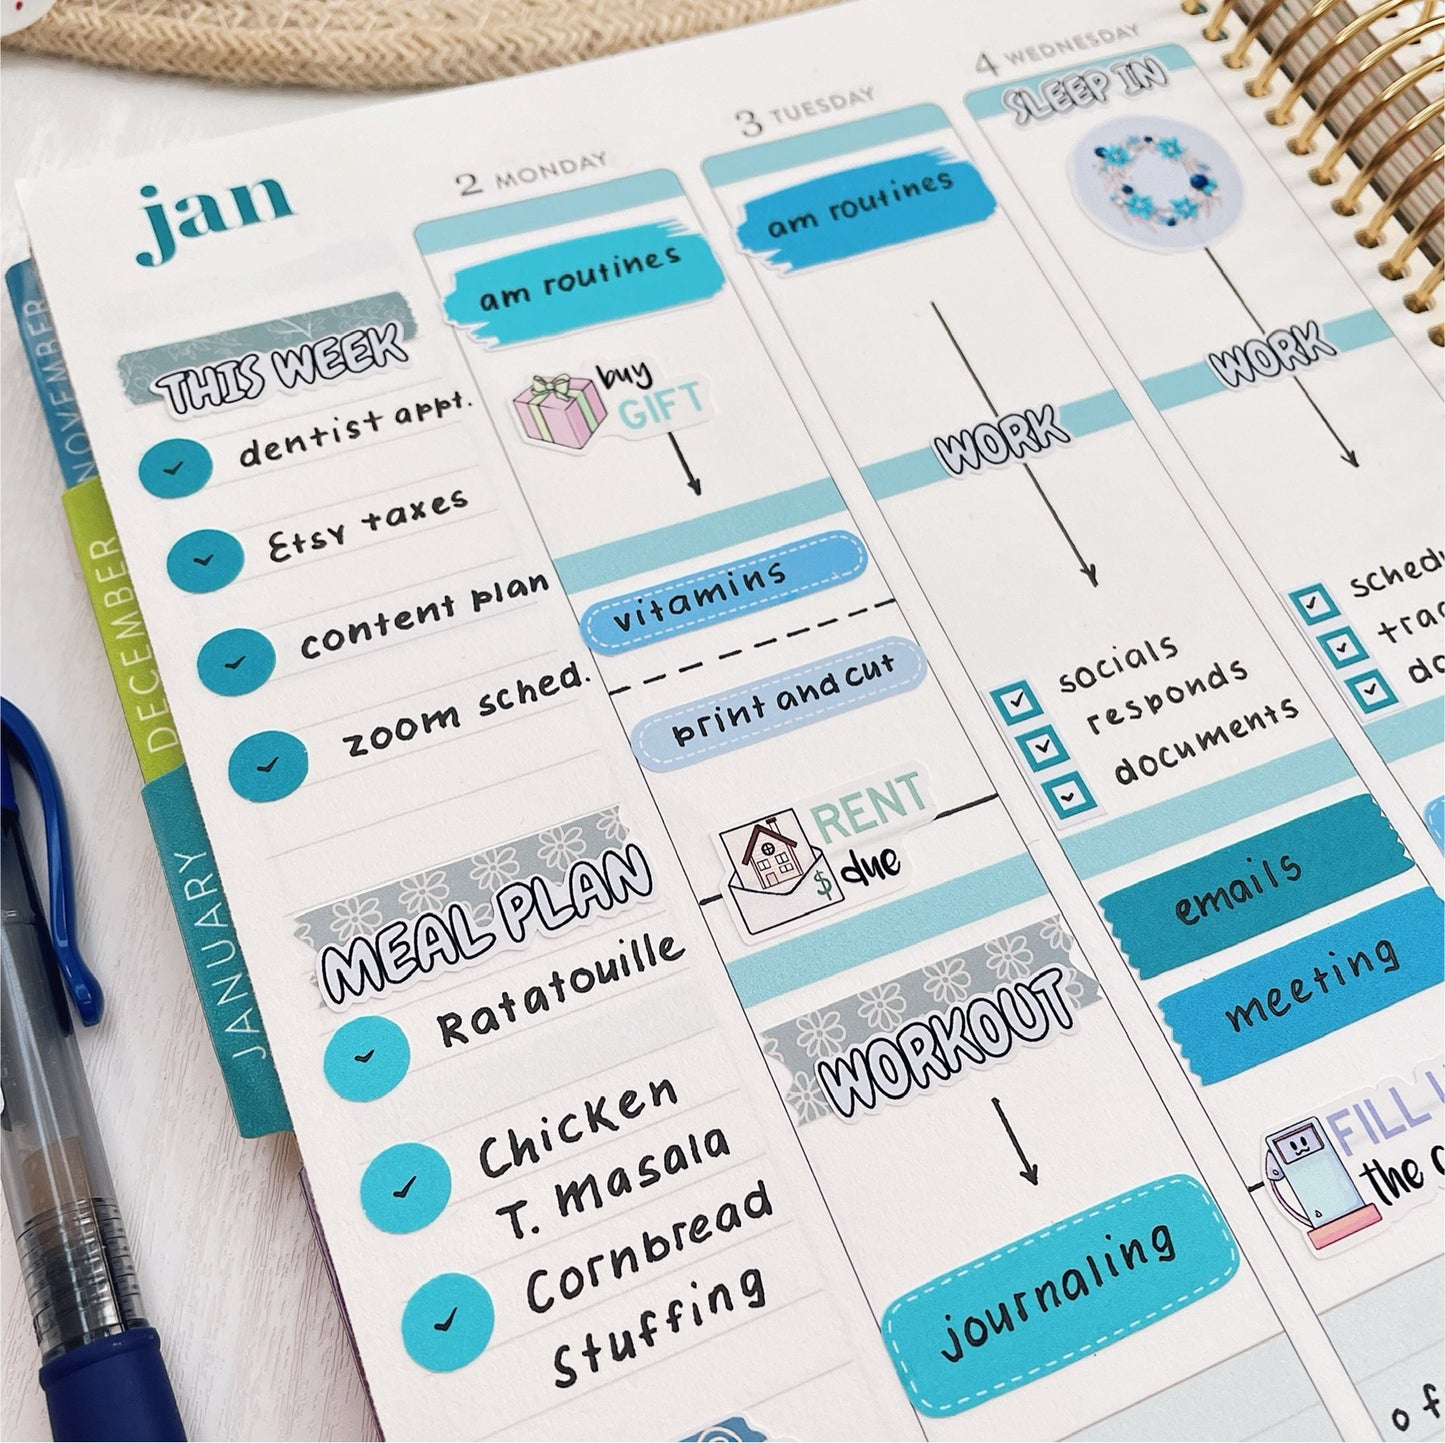 NOVEMBER
DECEMBER
JANUARY
jan
THIS WEEK
dentist appt.
Etsy taxes
content plan
zoom sched.
MEAL PLAN
Ratatouille
Chicken
T. Masala
Cornbread
Stuffing
2 MONDAY
am routines
buy
GIFT
vitamins
print and cut
RENT
$ due
WORKOUT
journaling
3 TUESDAY
am routines
WORK
socials
responds
documents
emails
meeting
FILL
the
4 WEDNESDAY
SLEEP IN
WORK